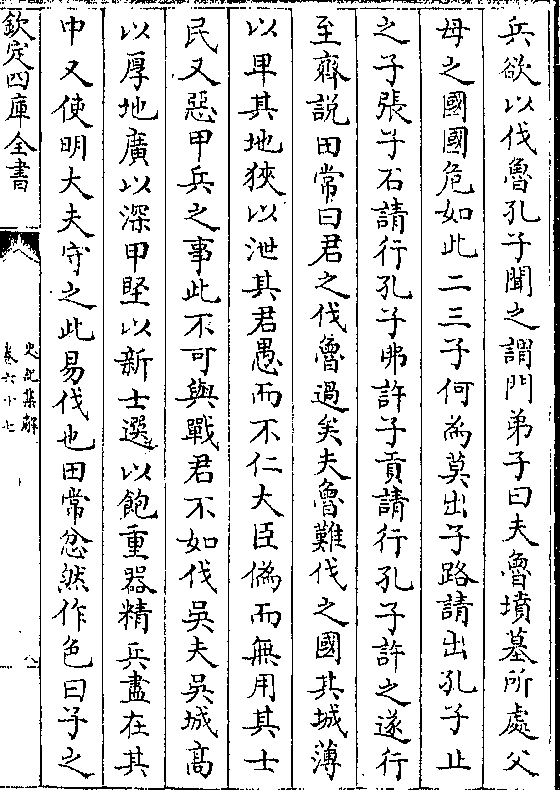 兵欲以伐魯孔子聞之謂門弟子曰夫魯墳墓所處父
母之國國危如此二三子何為莫出子路請出孔子止
之子張子石請行孔子弗許子貢請行孔子許之遂行
至齊說田常曰君之伐魯過矣夫魯難伐之國其城薄
以卑其地狹以泄其君愚而不仁大臣偽而無用其士
民又惡甲兵之事此不可與戰君不如伐吳夫吳城高
以厚地廣以深甲堅以新士選以飽重器精兵盡在其
中又使明大夫守之此易伐也田常忿然作色曰子之
欽定四庫全書
史記集解
卷六十七